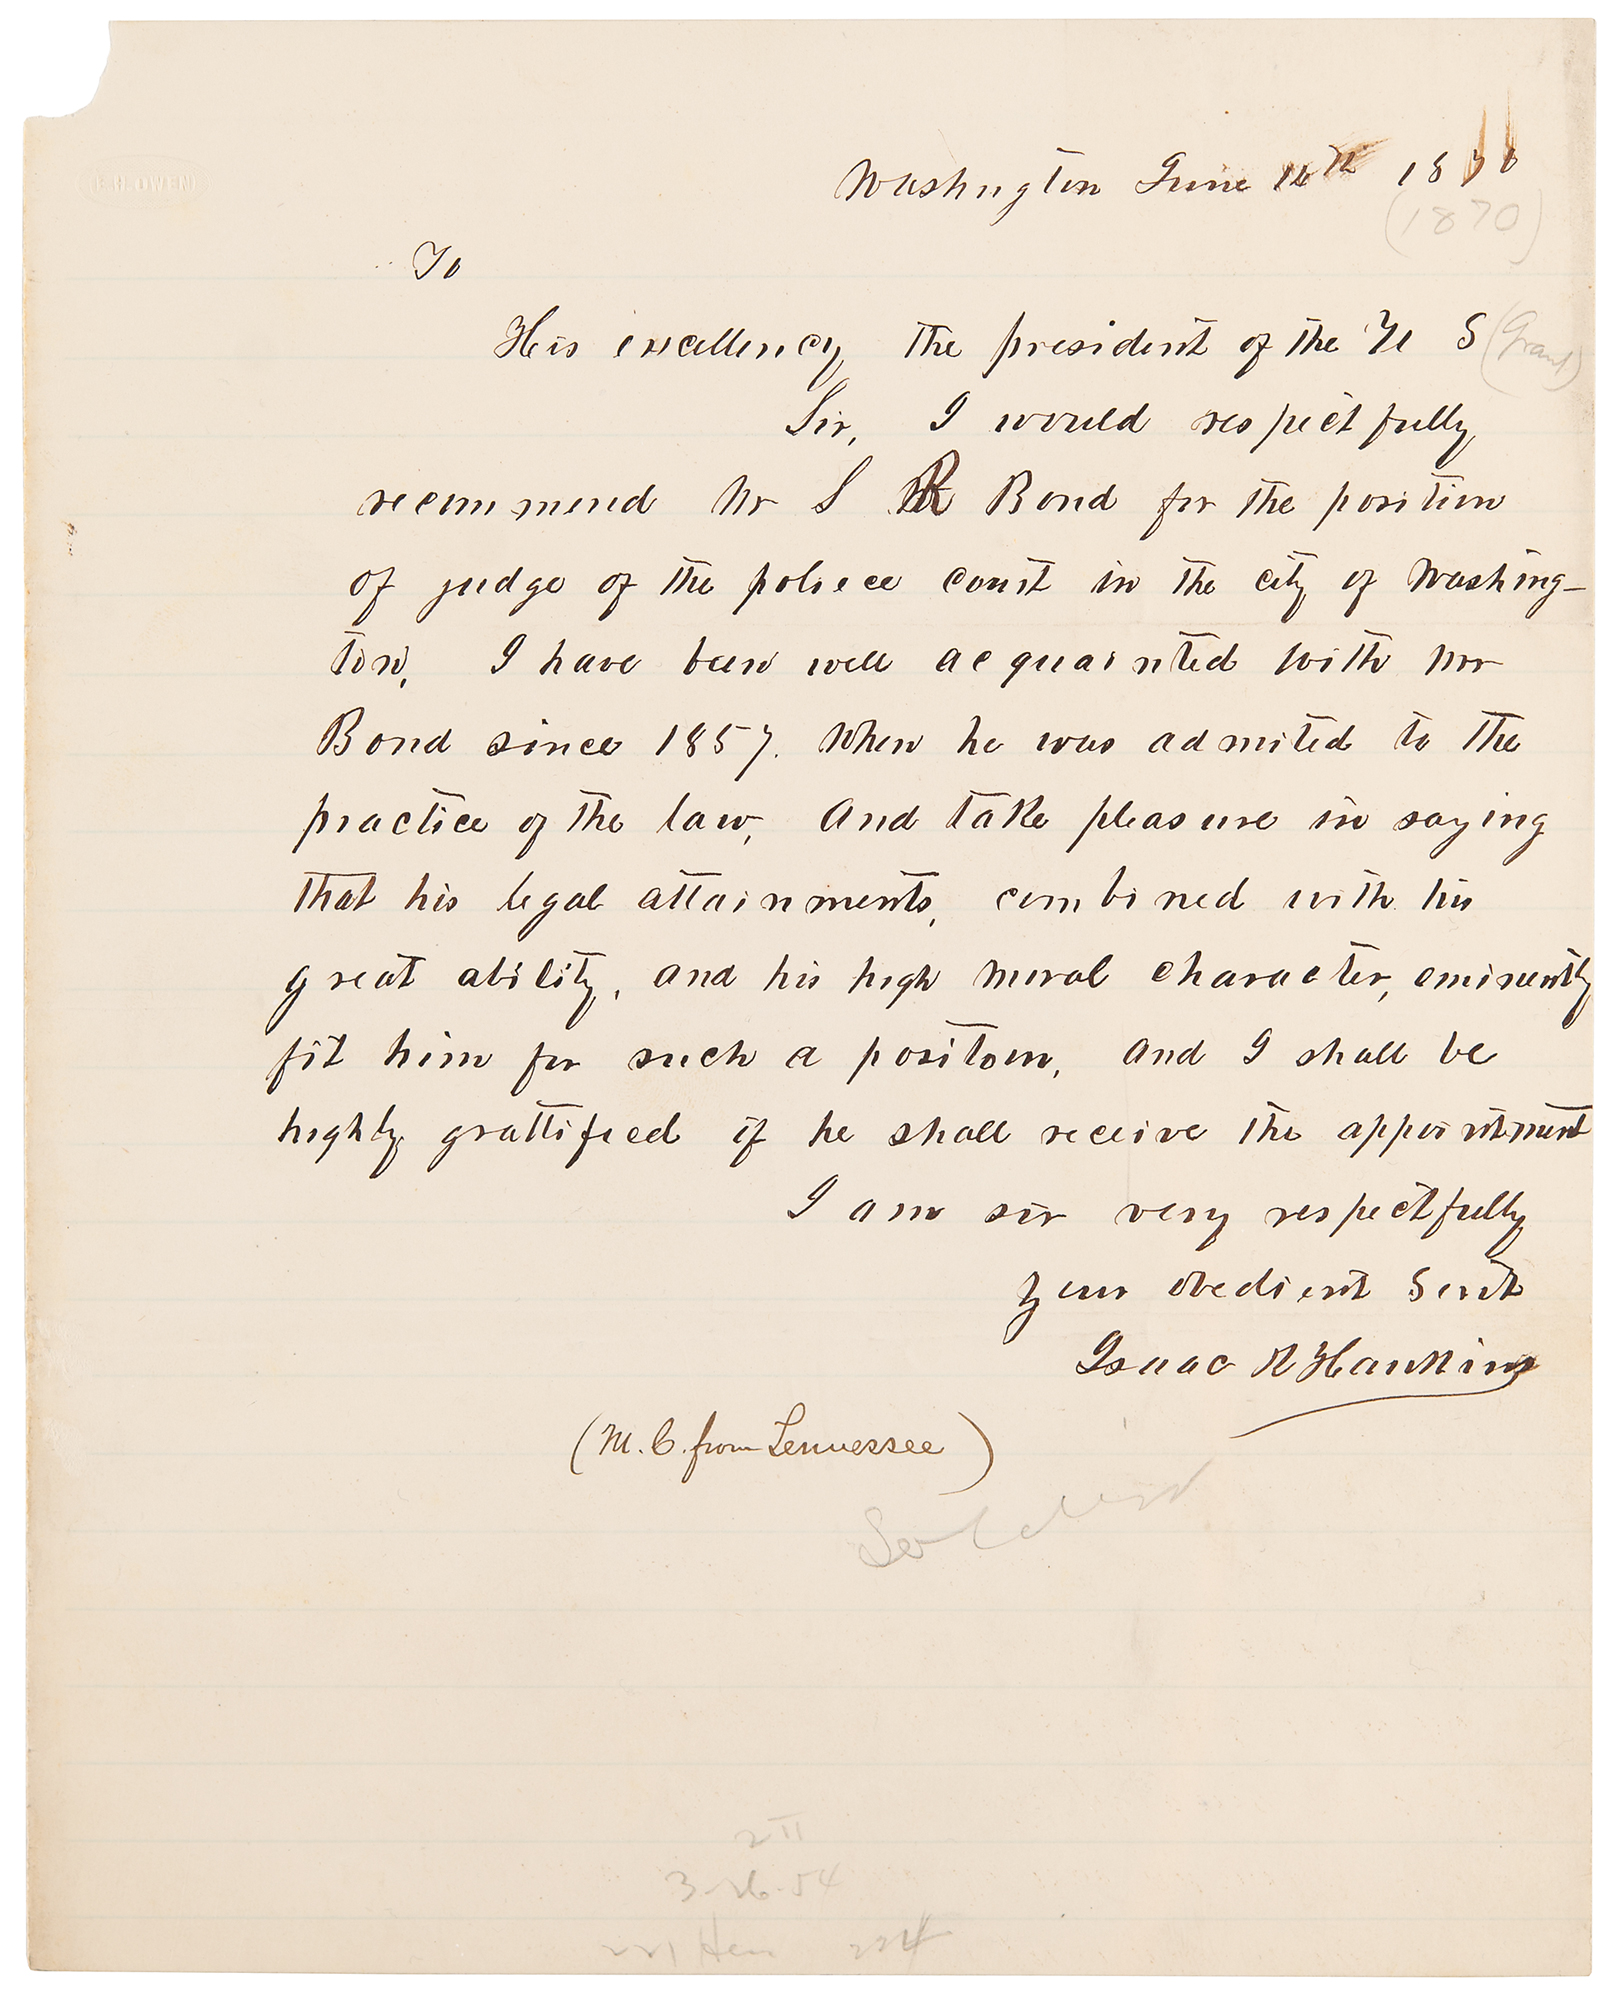 Washington June 16th 1870
(1870)
To
His excellency the president of the U S (Grant)
Sir, I would respectfully
recommend Mr S R Bond for the position
of judge of the poliece court in the city of Washing-
ton, I have been well acquainted with Mr
Bond since 1857. When he was admited to the
practice of the law, And take pleasure in saying
that his legal attainments, combined with his
great ability, and his high moral character, eminently
fit him for such a position, and I shall be
highly grattified if he shall receive the appointment
I am sir very respectfully
your obedient Servt
Isaac R Hawkins
(M.C. from Tennessee)
3-26-54